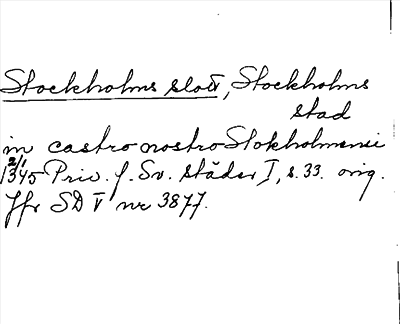 Stockholms slott, Stockholms
stad
in castro nostro Stokholmensi
2/1
1345 Priv. f. Sv. städer I, s. 33. orig.
Jfr SD V nr 3877.